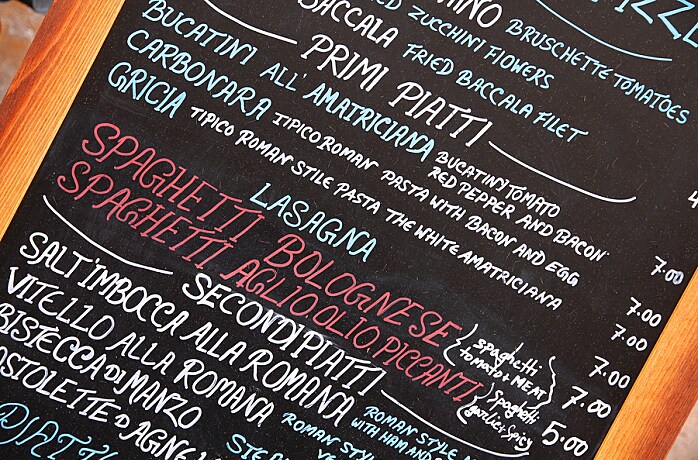 BACCALA FRIED ZUCCHINI FLOWERS BRUSCHETTE TOMATOES
FRIED BACCALA FILET
PRIMI PIATTI
BUCATINI ALL' AMATRICIANA BUCATINI TOMATO
RED PEPPER AND BACON 7.00
CARBONARA TIPICO ROMAN PASTA WITH BACON AND EGG 7.00
GRICIA TIPICO ROMAN STILE PASTA THE WHITE AMATRICIANA 7.00
LASAGNA
SPAGHETTI BOLOGNESE { spaghetti tomato & MEAT } 7.00
SPAGHETTI AGLIO OLIO, PICCANTI { Spaghetti garlic & spicy 5.00
SECONDI PIATTI
SALT'IMBOCCA ALLA ROMANA ROMAN STYLE
WITH HAM AND
VITELLO ALLA ROMANA ROMAN STYLE
BISTECCA DI MANZO